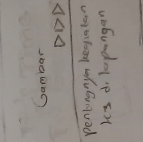 Gambar
Pentingnya kegiatan
k3 di lapangan